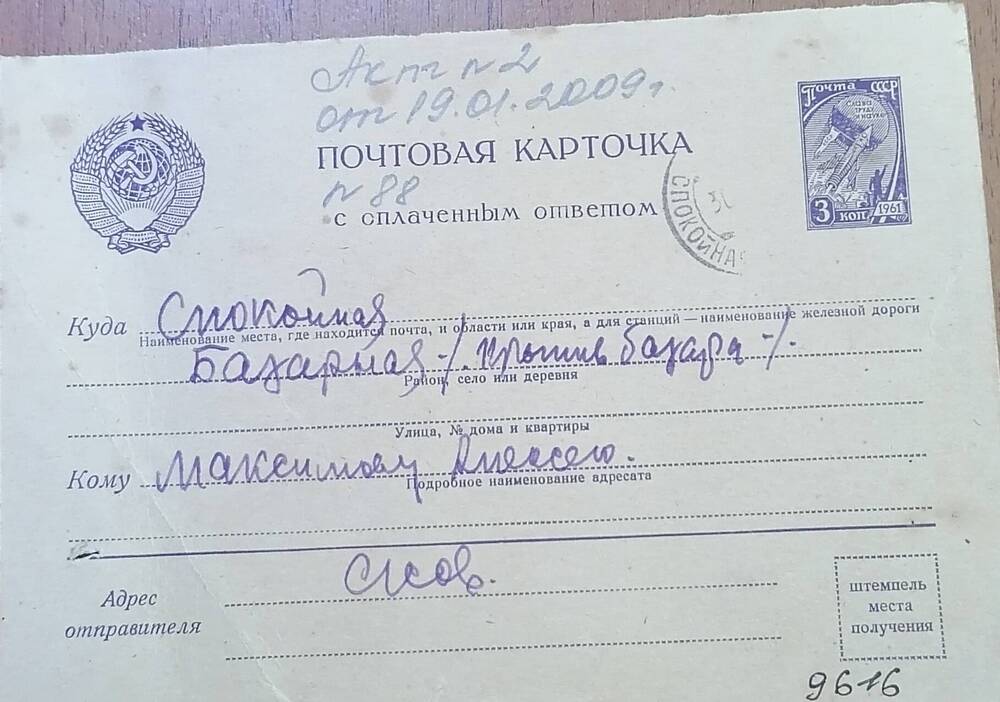 Акт № 2
от 19.01.2009г.
ПОЧТОВАЯ КАРТОЧКА
№ 88
с оплаченным ответом
СПОКОЙНАЯ
Почта СССР
СЛАВА
ТРУДУ
И НАУКЕ
3 коп
1961
Куда Спокойная
Наименование места, где находится почта, и области или края, а для станций — наименование железной дороги
Базарная -/. против базара -/.
Район, село или деревня
Улица, № дома и квартиры
Кому Максимову Алексею.
Подробное наименование адресата
Адрес
отправителя
штемпель
места
получения
9616